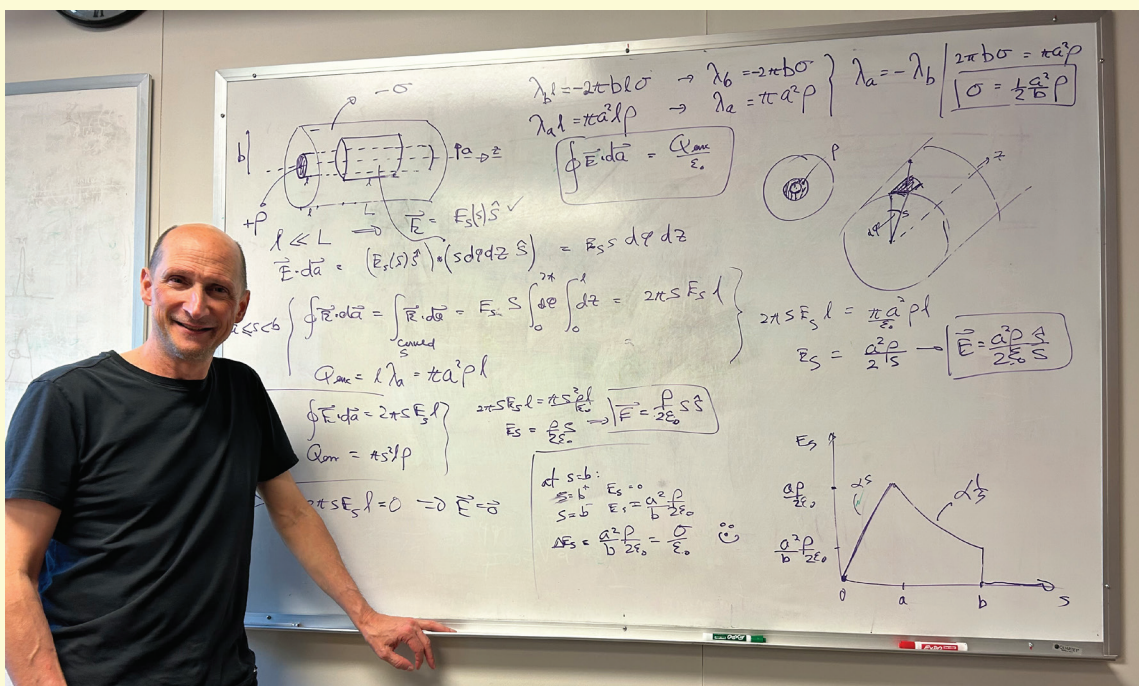 −σ
λ_b l = −2πblσ → λ_b = −2πbσ
λ_a l = πa²lρ → λ_a = πa²ρ
} λ_a = −λ_b
2πbσ = πa²ρ
σ = ½ a²/b ρ
b
a → z
+ρ
l
L
∮ E⃗·da⃗ = Q_enc/ε₀
ρ
z
s
dφ
l ≪ L ⇒ E⃗ = E_s(s) ŝ ✓
E⃗·da⃗ = (E_s(s) ŝ)·(s dφ dz ŝ) = E_s s dφ dz
a ≤ s < b { ∮ E⃗·da⃗ = ∫ E⃗·da⃗ = E_s s ∫₀^2π dφ ∫₀^l dz = 2πs E_s l }
curved
s
=
Q_enc = l λ_a = πa²ρ l
2πs E_s l = πa²/ε₀ ρl
E_s = a²ρ/2 s → E⃗ = a²ρ/2ε₀ ŝ/s
∮ E⃗·da⃗ = 2πs E_s l
Q_enc = πs²lρ
2πs E_s l = πs²ρl/ε₀
E_s = ρs/2ε₀ → E⃗ = ρ/2ε₀ s ŝ
2πs E_s l = 0 ⇒ E⃗ = 0⃗
at s=b:
s=b⁺ E_s = 0
s=b⁻ E_s = a²/b ρ/2ε₀
ΔE_s = a²/b ρ/2ε₀ = σ/ε₀
E_s
aρ/2ε₀
a²/b ρ/2ε₀
αs
α 1/s
0 a b s
EXPO
EXPO